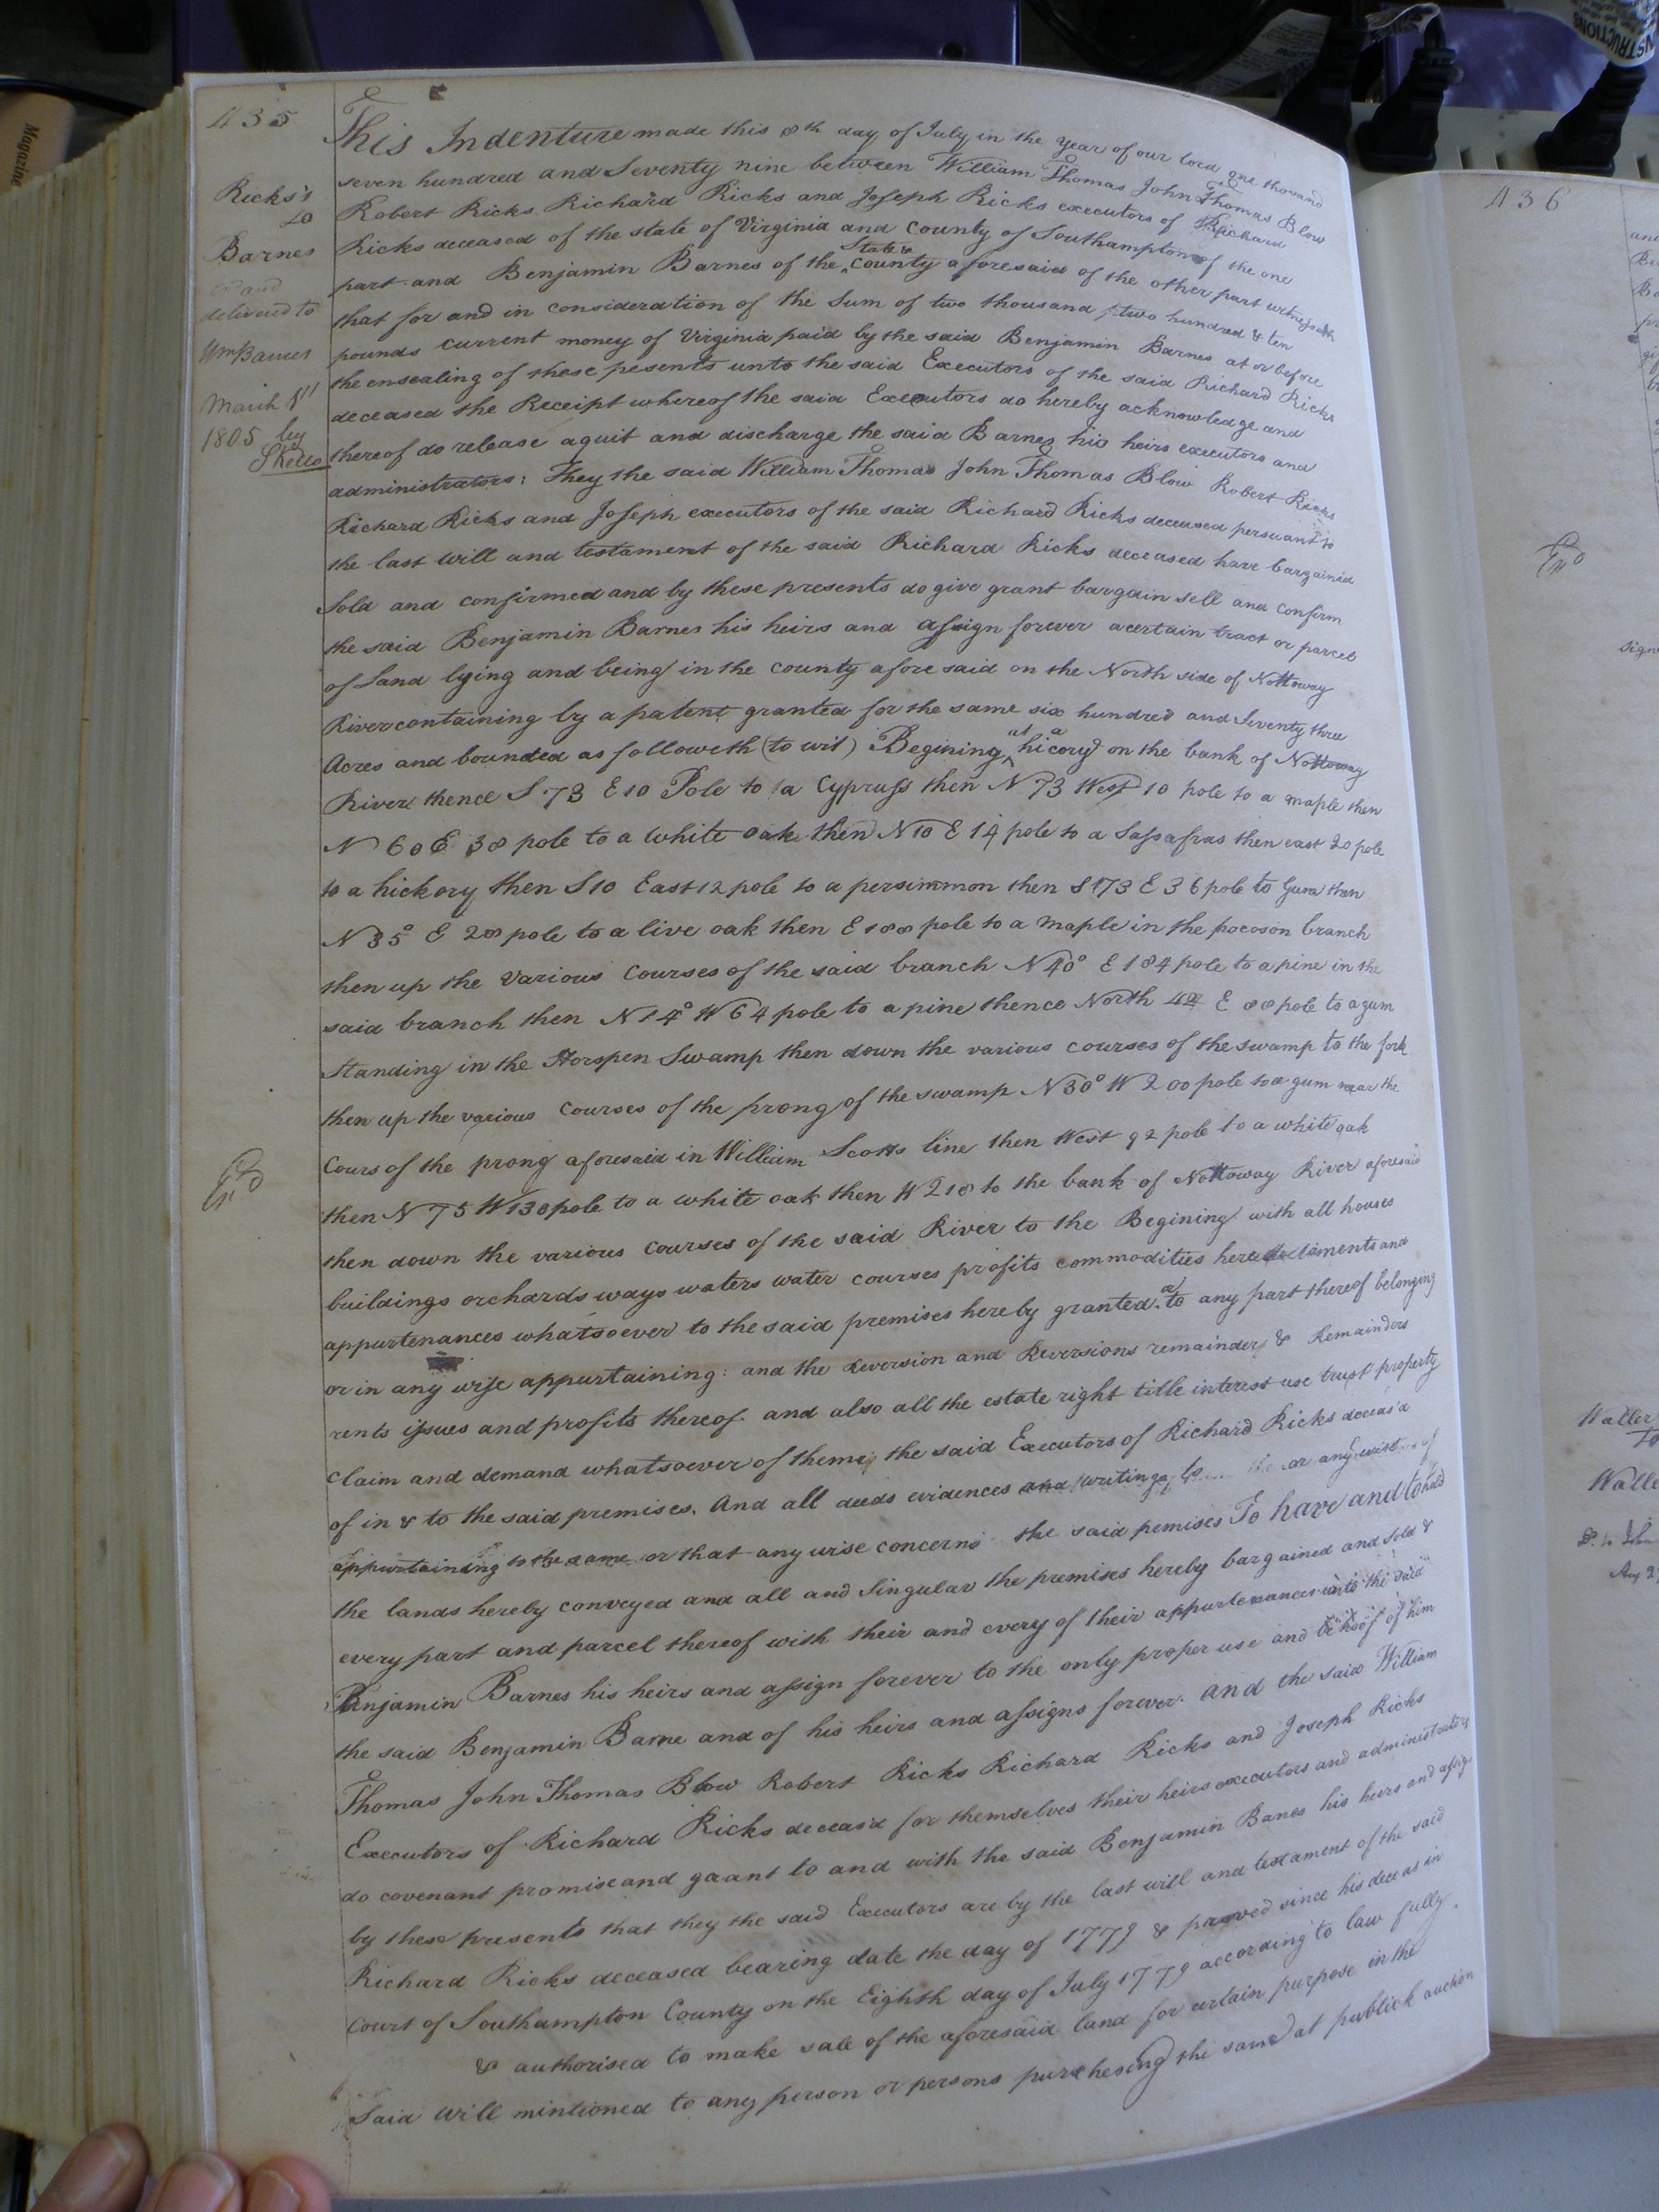 435
Ricks's
to
Barnes
delivered to
Wm Barnes
March 8th
1805 by
S Kello
Exd
This Indenture made this 8th day of July in the year of our lord one thousand
seven hundred and Seventy nine between William Thomas John Thomas Blow
Robert Ricks Richard Ricks and Joseph Ricks executors of Richard
Ricks deceased of the state of Virginia and county of Southampton of the one
part and Benjamin Barnes of the State & county aforesaid of the other part witnesseth
that for and in consideration of the Sum of two thousand two hundred & ten
pounds current money of Virginia paid by the said Benjamin Barnes at or before
the ensealing of these pesents unto the said Executors of the said Richard Ricks
deceased the Receipt whereof the said Executors do hereby acknowledge and
thereof do release aquit and discharge the said Barnes his heirs executors and
administrators: They the said William Thomas John Thomas Blow Robert Ricks
Richard Ricks and Joseph executors of the said Richard Ricks deceased persuant to
the last will and testament of the said Richard Ricks deceased have bargained
Sold and confirmed and by these presents do give grant bargain sell and confirm
the said Benjamin Barnes his heirs and assign forever a certain tract or parcel
of Land lying and being in the county afore said on the North side of Nottoway
River containing by a patent granted for the same six hundred and Seventy three
Acres and bounded as followeth (to wit) Begining at a hicory on the bank of Nottoway
River thence S 73 E 10 Pole to a Cypruss then N 73 West 10 pole to a maple then
N 60 E 38 pole to a white oak then N 10 E 14 pole to a Sassafras then east 20 pole
to a hickory then S 10 East 12 pole to a persimmon then S 173 E 36 pole to Gum then
N 35° E 28 pole to a live oak then E 188 pole to a maple in the pocoson branch
then up the various Courses of the said branch N 40° E 184 pole to a pine in the
said branch then N 14° W 64 pole to a pine thence North E 88 pole to a gum
Standing in the Horspen Swamp then down the various courses of the swamp to the fork
then up the various Courses of the prong of the swamp N 30° W 200 pole to a gum near the
Cours of the prong aforesaid in William Scotts line then West 92 pole to a white oak
then N 75 W 130 pole to a white oak then W 218 to the bank of Nottoway River aforesaid
then down the various courses of the said River to the Begining with all houses
buildings orchards ways waters water courses profits commodities hereditaments and
appurtenances whatsoever to the said premises hereby granted or to any part thereof belonging
or in any wise appurtaining: and the Reversion and Reversions remainder & Remainders
rents issues and profits thereof. and also all the estate right title interest use trust property
Claim and demand whatsoever of them the said Executors of Richard Ricks deceas'd
of in & to the said premises. And all deeds evidences and writings or any wist of
appurtaining to the same or that any wise concerns the said pemises To have and to hold
the lands hereby conveyed and all and Singular the premises hereby bargained and sold &
every part and parcel thereof with their and every of their appurtenances unto the said
Benjamin Barnes his heirs and assign forever to the only proper use and behoof of him
the said Benjamin Barne and of his heirs and assigns forever. And the said William
Thomas John Thomas Blow Robert Ricks Richard Ricks and Joseph Ricks
Executors of Richard Ricks deceas'd for themselves their heirs executors and administrators
do covenant promise and graant to and with the said Benjamin Banes his heirs and assigs
by these presents that they the said Executors are by the last will and testament of the said
Richard Ricks deceased bearing date the day of 1779 & prooved since his deceas in
Court of Southampton County on the Eighth day of July 1779 according to law fully
& authorised to make sale of the aforesaid land for certain purpose in the
Said Will mintioned to any person or persons purchesing the same at publick auction
436
Exd
sign
Waller
to
Walle
Aug 2
INSTRUCTIONS
Magazine